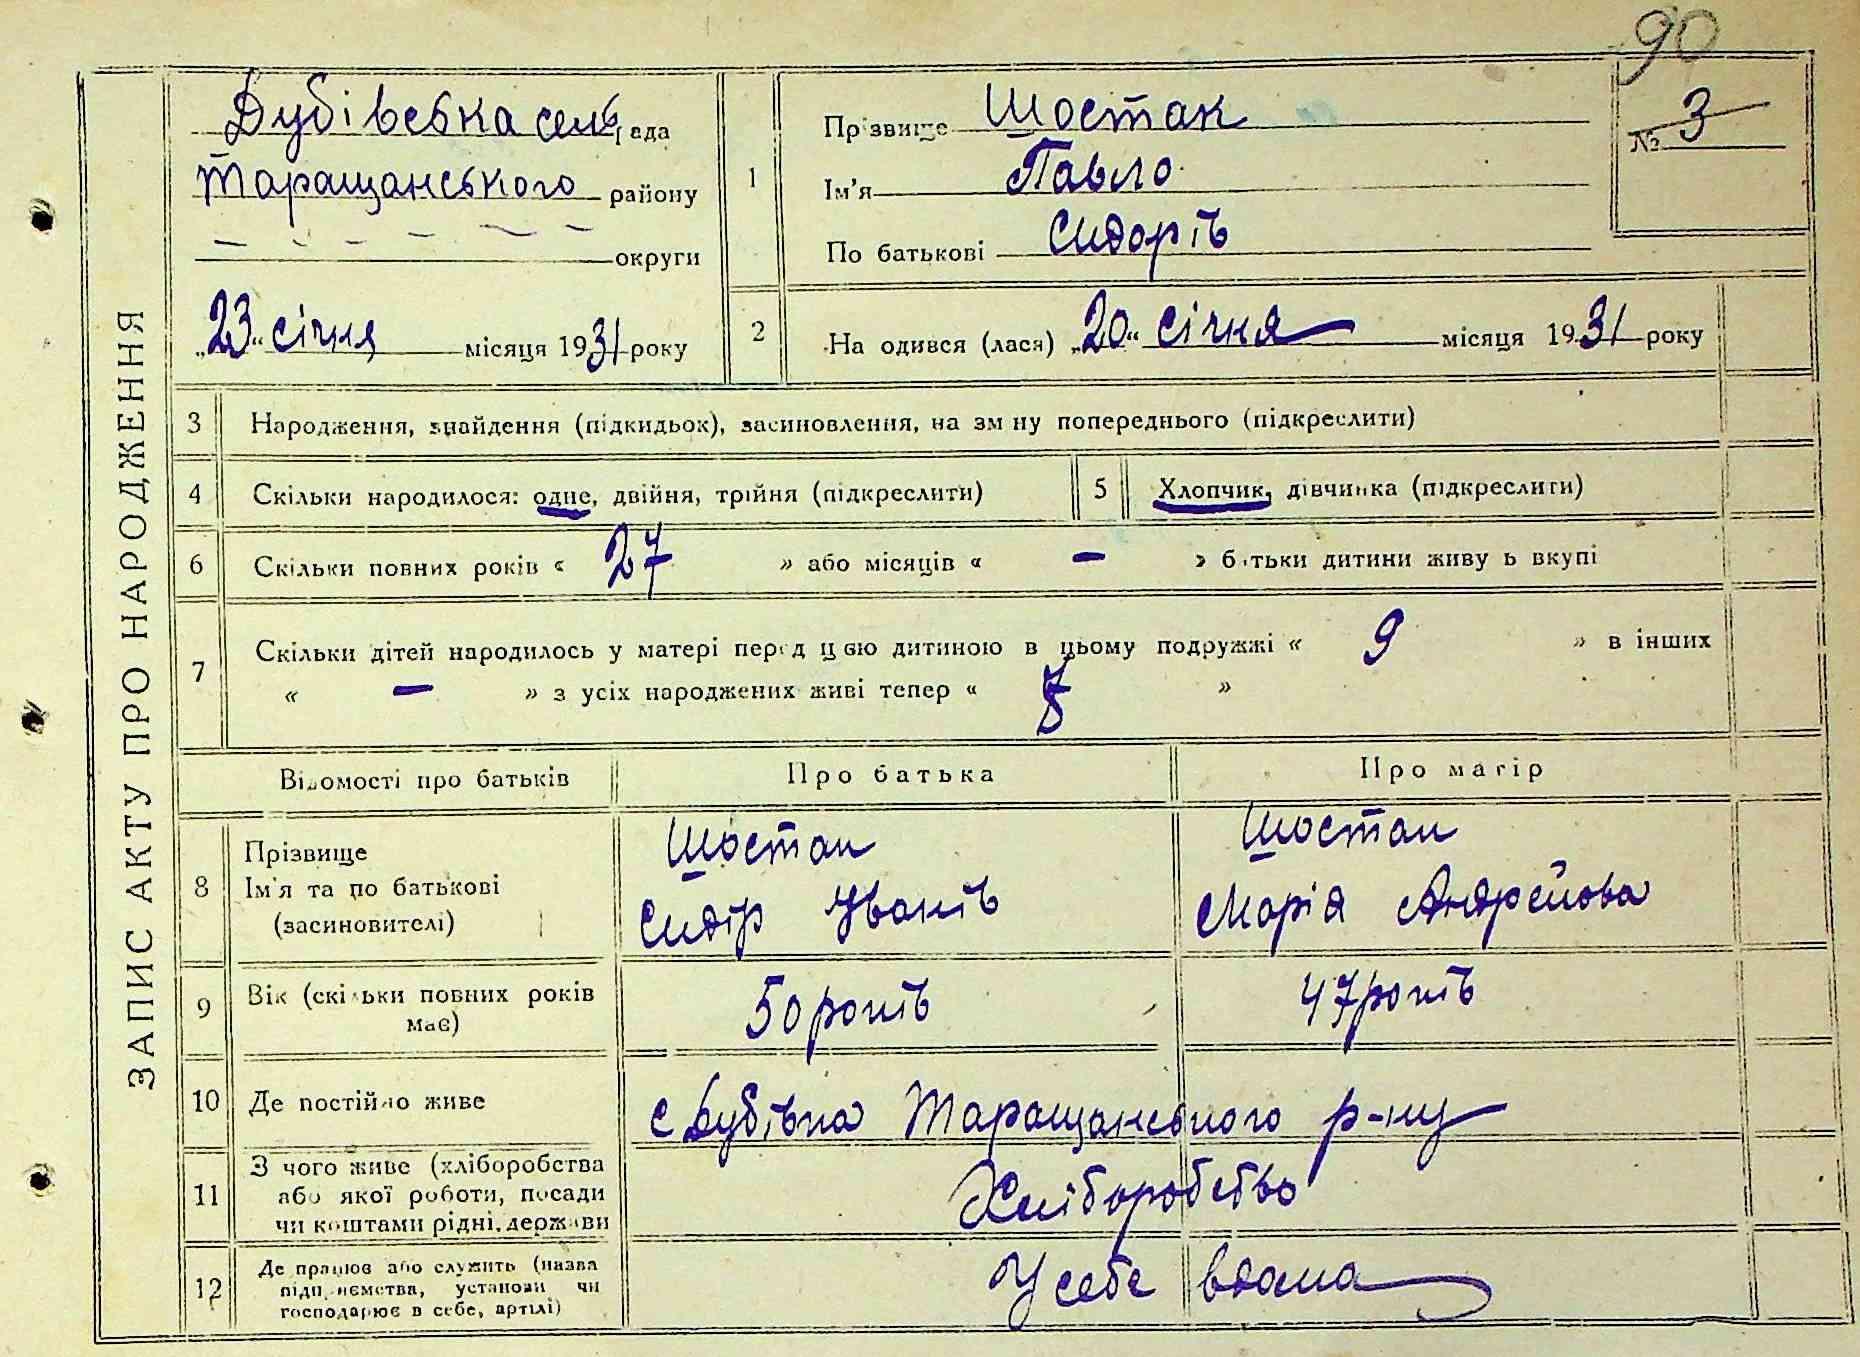 90
ЗАПИС АКТУ ПРО НАРОДЖЕННЯ
Дубівська сель рада
Таращанського району
— — — — — — округи
„23“ січня місяця 1931 року
1
Прізвище Шостак
Ім'я Павло
По батькові Сидорів
№ 3
2
На одився (лася) „20“ січня місяця 1931 року
3 Народження, знайдення (підкидьок), засиновлення, на зм ну попереднього (підкреслити)
4 Скільки народилося: одне, двійня, трійня (підкреслити)
5 Хлопчик, дівчинка (підкреслити)
6 Скільки повних років « 27 » або місяців « — » батьки дитини живу ь вкупі
7 Скільки дітей народилось у матері перед цією дитиною в цьому подружжі « 9 » в інших
« — » з усіх народжених живі тепер « »
Відомості про батьків
Про батька
Про матір
8
Прізвище
Ім'я та по батькові
(засиновителі)
Шостак
Сидір Іванів
Шостак
Марія Андрейова
9
Вік (скільки повних років
має)
50 років
47 років
10 Де постійно живе
с Дубівка Таращанського р-ну
11
З чого живе (хліборобства
або якої роботи, посади
чи коштами рідні, держави
Хліборобство
12
Де працює або служить (назва
підприємства, установи чи
господарює в себе, артілі)
У себе вдома